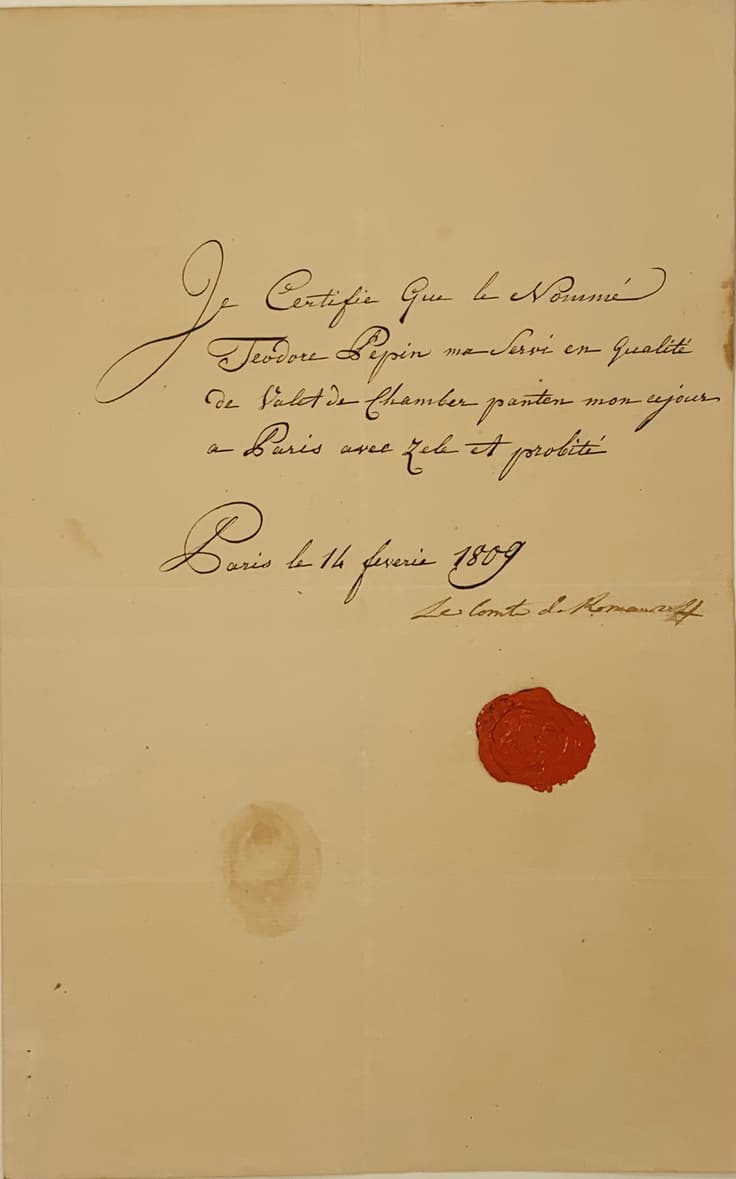 Je Certifie Que le Nommé
Teodore Pepin ma Servi en Qualité
de Valet de Chamber panten mon cejour
a Paris avec Zele et probité
Paris le 14 feverie 1809
Le Comte de